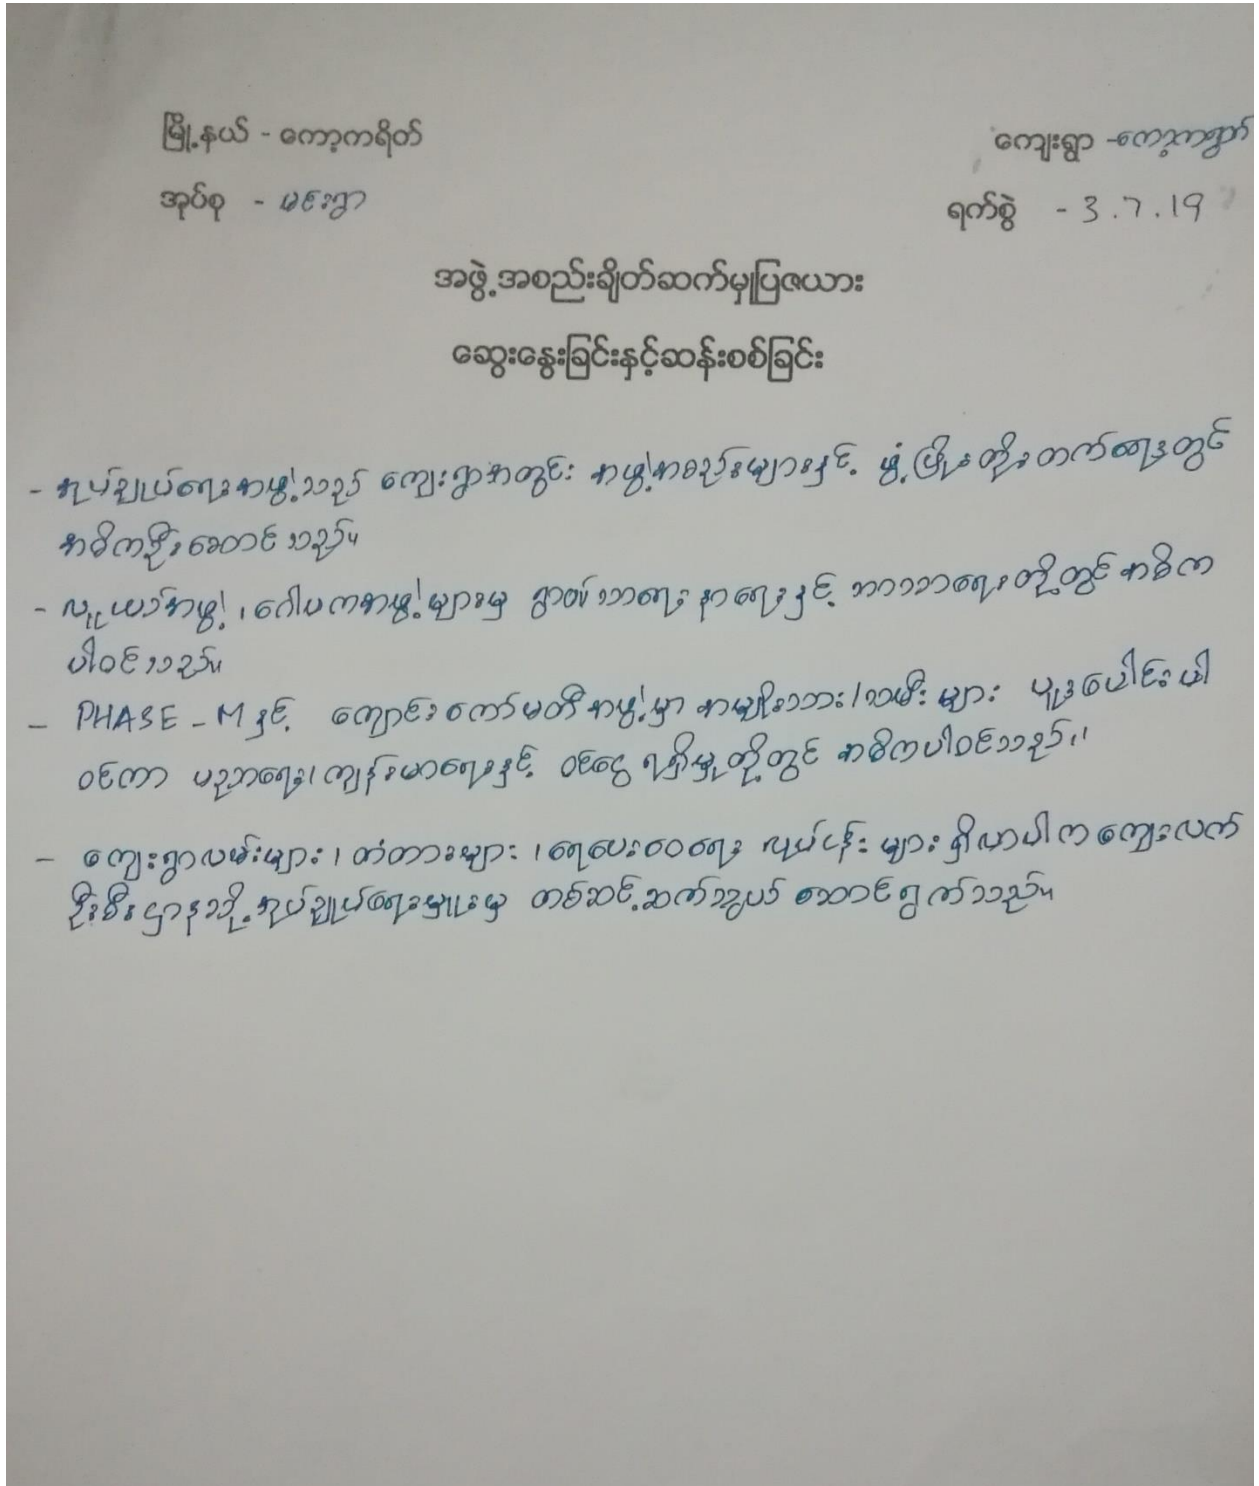 မြို့နယ် - ကော့ကရိတ် ကျေးရွာ - ကော့ကရွက်
အုပ်စု - မင်းရွာ ရက်စွဲ - 3.7.19
အဖွဲ့အစည်းချိတ်ဆက်မှုပြဇယား
ဆွေးနွေးခြင်းနှင့်ဆန်းစစ်ခြင်း
- အုပ်ချုပ်ရေးအဖွဲ့သည် ကျေးရွာအတွင်း အဖွဲ့အစည်းများနှင့် ဖွံ့ဖြိုးတိုးတက်ရေးတွင်
အဓိကဦးဆောင်သည်။
- လူငယ်အဖွဲ့၊ ဂေါပကအဖွဲ့များမှ ရွာတွင်းသာရေးနာရေးနှင့် ဘာသာရေးတို့တွင် အဓိက
ပါဝင်သည်။
- PHASE-M နှင့် ကျောင်းကော်မတီအဖွဲ့မှာ အမျိုးသား/သမီးများ ပူးပေါင်းပါ
ဝင်ကာ ပညာရေး၊ ကျန်းမာရေးနှင့် ဝင်ငွေရရှိမှုတို့တွင် အဓိကပါဝင်သည်။
- ကျေးရွာလမ်းများ၊ တံတားများ၊ ရေပေးဝေရေး လုပ်ငန်းများရှိလာပါက ကျေးလက်
ဦးစီးဌာနသို့ အုပ်ချုပ်ရေးမှူးမှ တစ်ဆင့်ဆက်သွယ် ဆောင်ရွက်သည်။